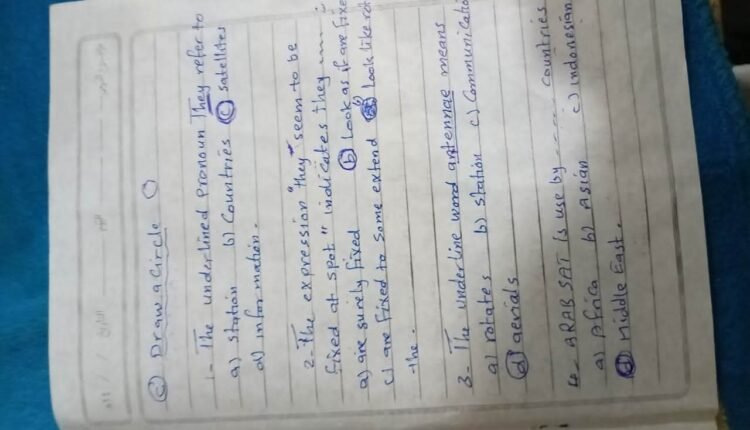 C) Draw a circle
1- The underlined pronoun They refer to
a) station b) Countries c) satellites
d) information.
2- The expression "they seem to be
fixed at spot" indicates they
a) are surely fixed b) Look as if are fixed
c) are fixed to some extend d) Look like rot
the.
3- The underline word antennae means
a) rotates b) station c) Communicatio
d) aerials
4- ARABSAT is use by ....... Countries
a) Africa b) Asian c) indonesian
d) Middle East.